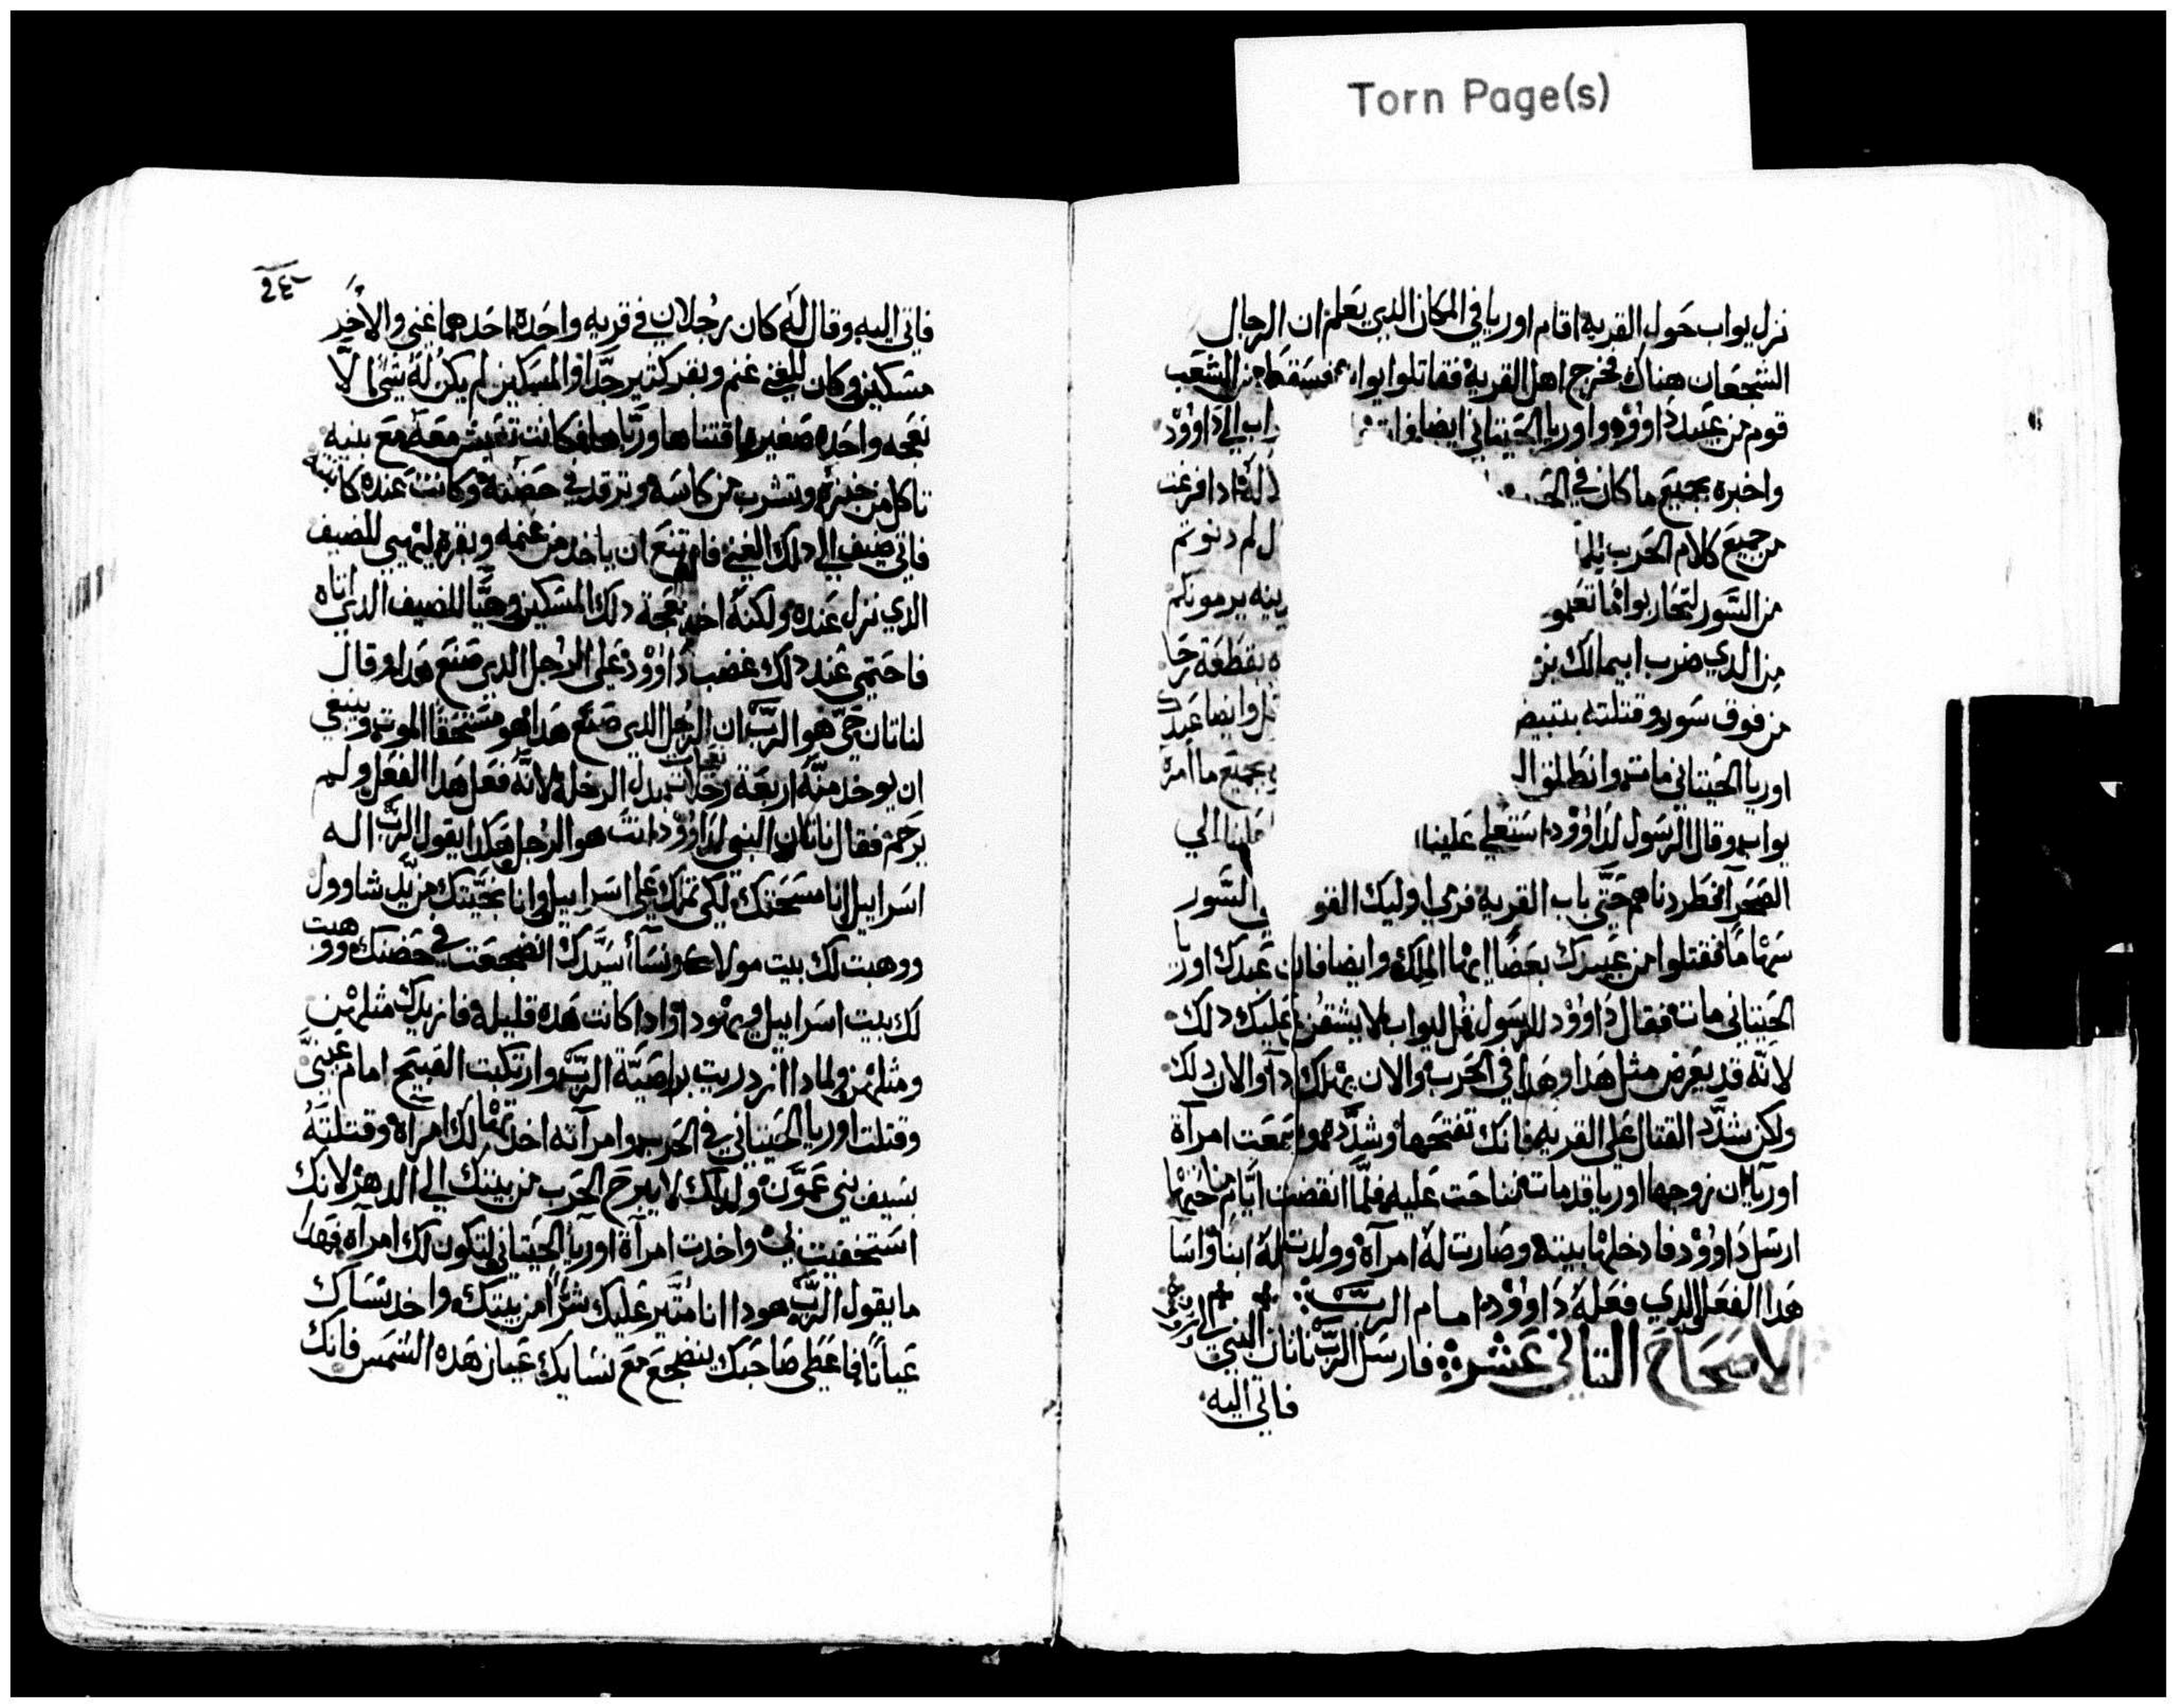 Torn Page(s)
نزل يواب حول القريه اقام اوريا في المكان الذي يعلم ان الرجال
الشجعان هناك فخرج اهل القرية فقاتلوا يواب فسقط من الشعب
قوم من عبيد داوود واوريا الحيتاني ايضا مات اب الي داوود
واخبره بجميع ما كان في الحرب له ادا فرغت
من جميع كلام الحرب للملك ل لم دنوتم
من السور لتحاربوا اما تعلمو ينه يرمونكم
من الذي ضرب ابيمالك بن ه بقطعة رحا
من فوق سور وقتلته بتبيص ل وايضا عبدك
اوريا الحيتاني مات وانطلق ال بجميع ما امره
يواب وقال الرسول لداوود استعلي علينا علينا الي
الصحرا فطردناهم حتي باب القرية فرمي اوليك القو السور
سهاما فقتلوا من عبيدك بعضا ايها الملك وايضا فان عبدك اوريا
الحيتاني مات فقال داوود للرسول قل ليواب لا يشقن عليك دلك
لانه قد يعرض مثل هدا وهدا في الحرب والان يهلك دا والان دلك
ولكن شدد القتال علي القريه فانك تفتحها وشددهم وسمعت امرآة
اوريا ان زوجها اوريا قد مات فناحت عليه فلما انقضت ايام مناحتها
ارسل داوود فادخلها بيته وصارت له امرآة وولدت له ابنا واسآ
هدا الفعل الذي فعله داوود امام الرب
الاصحاح التاني عشر فارسل الرب ناتان النبي الي داوود
فاتي اليه
٢٤
فاتي اليه وقال له كان رجلان في قريه واحدة احدهما غني والاخر
مسكين وكان للغني غنم وبقر كثير جدا والمسكين لم يكن له شي الا
نعجه واحده صغيره اقتناها ورباها فكانت تعيش معه مع بنيه
تاكل من خبزه وتشرب من كاسه وترقد في حضنه وكانت عنده كابنته
فاتي ضيف الي دلك الغني فامتنع ان ياخد من غنمه وبقره ليهيي للضيف
الذي نزل عنده ولكنه اخد نعجة دلك المسكين وهيا للضيف الذي اتاه
فاحتمي عند دلك غضب داوود علي الرجل الدي صنع هدا وقال
لناتان حي هو الرب ان الرجل الدي صنع هدا هو مستحقا الموت وينبغي
ان يوخد منه اربعة نعجات رخلات بدل الرخلة لانه فعل هدا الفعل ولم
يرحم فقال ناتان النبي لداوود انت هو الرجل هكدا يقول الرب اله
اسراييل انا مسحتك لكي تملك علي اسراييل وانا نجيتك من يد شاوول
ووهبت لك بيت مولاك ونسآء سيدك انضجعت في حضنك ووهبت
لك بيت اسراييل ويهودا وادا كانت هده قليلة فانا زيدك مثلهن
ومثلهن ولمادا ازدريت بوصية الرب وارتكبت القبيح امام عيني
وقتلت اوريا الحيتاني في الحرب وامرآته اخدتها لك امرآة وقتلته
بسيف بني عمون ولدلك لا يبرح الحرب من بيتك الي الدهر لانك
استخفيت بي واخدت امرآة اوريا الحيتاني لتكون لك امرآه فهدا
ما يقول الرب هودا انا متير عليك شرا من بيتك واخد نساك
عيانا فاعطي صاحبك ينضجع مع نسايك عيان هده الشمس فانك